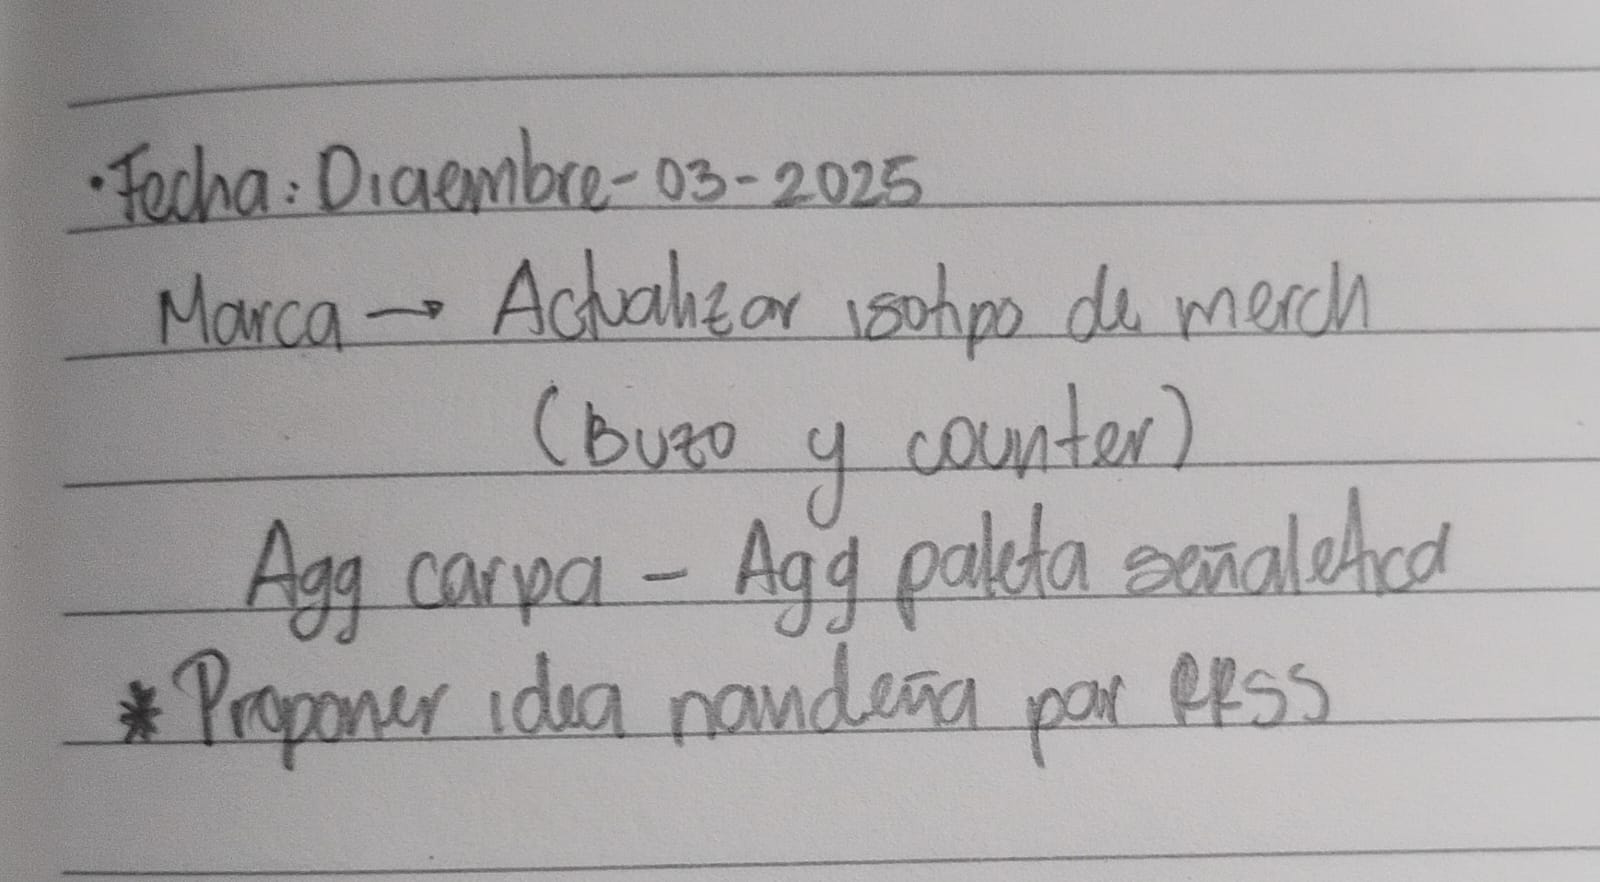 ·Fecha: Diciembre-03-2025
Marca → Actualizar isotipo de merch
(Buzo y counter)
Agg carpa - Agg paleta señaletica
* Proponer idea navideña por RRSS